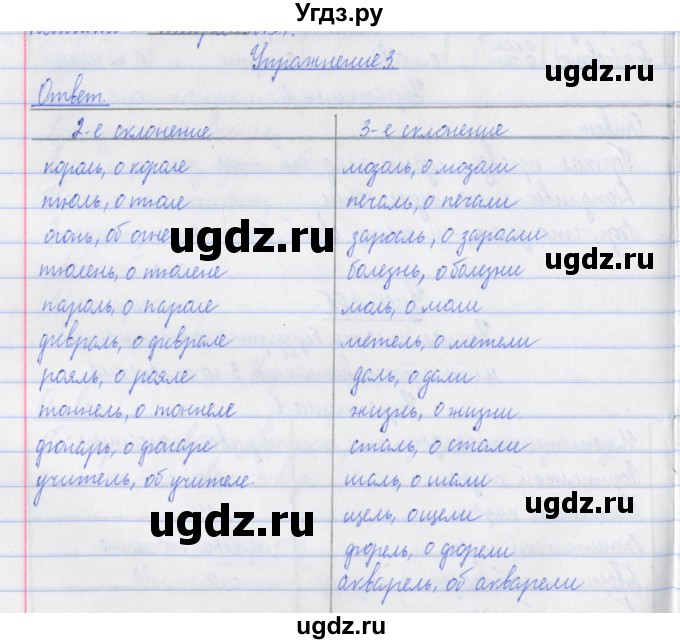 Угдз.ру
Упражнение 3.
Ответ.
2-е склонение
король, о короле
тюль, о тюле
огонь, об огне
тюлень, о тюлене
пароль, о пароле
февраль, о феврале
рояль, о рояле
тоннель, о тоннеле
фонарь, о фонаре
учитель, об учителе
3-е склонение
мозоль, о мозоли
печаль, о печали
заросль, о заросли
болезнь, о болезни
моль, о моли
метель, о метели
даль, о дали
жизнь, о жизни
сталь, о стали
шаль, о шали
щель, о щели
форель, о форели
акварель, об акварели
ugdz.ru
ugdz.ru
ugdz.ru
ugdz.ru
ugdz.ru
ugdz.ru
Угдз.ру